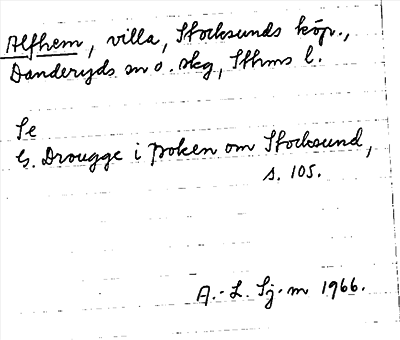 Alfhem, villa, Stocksunds köp.,
Danderyds sn o. skg, Sthms l.
Se
G. Drougge i boken om Stocksund,
s. 105.
A.-L. Sj-m 1966.